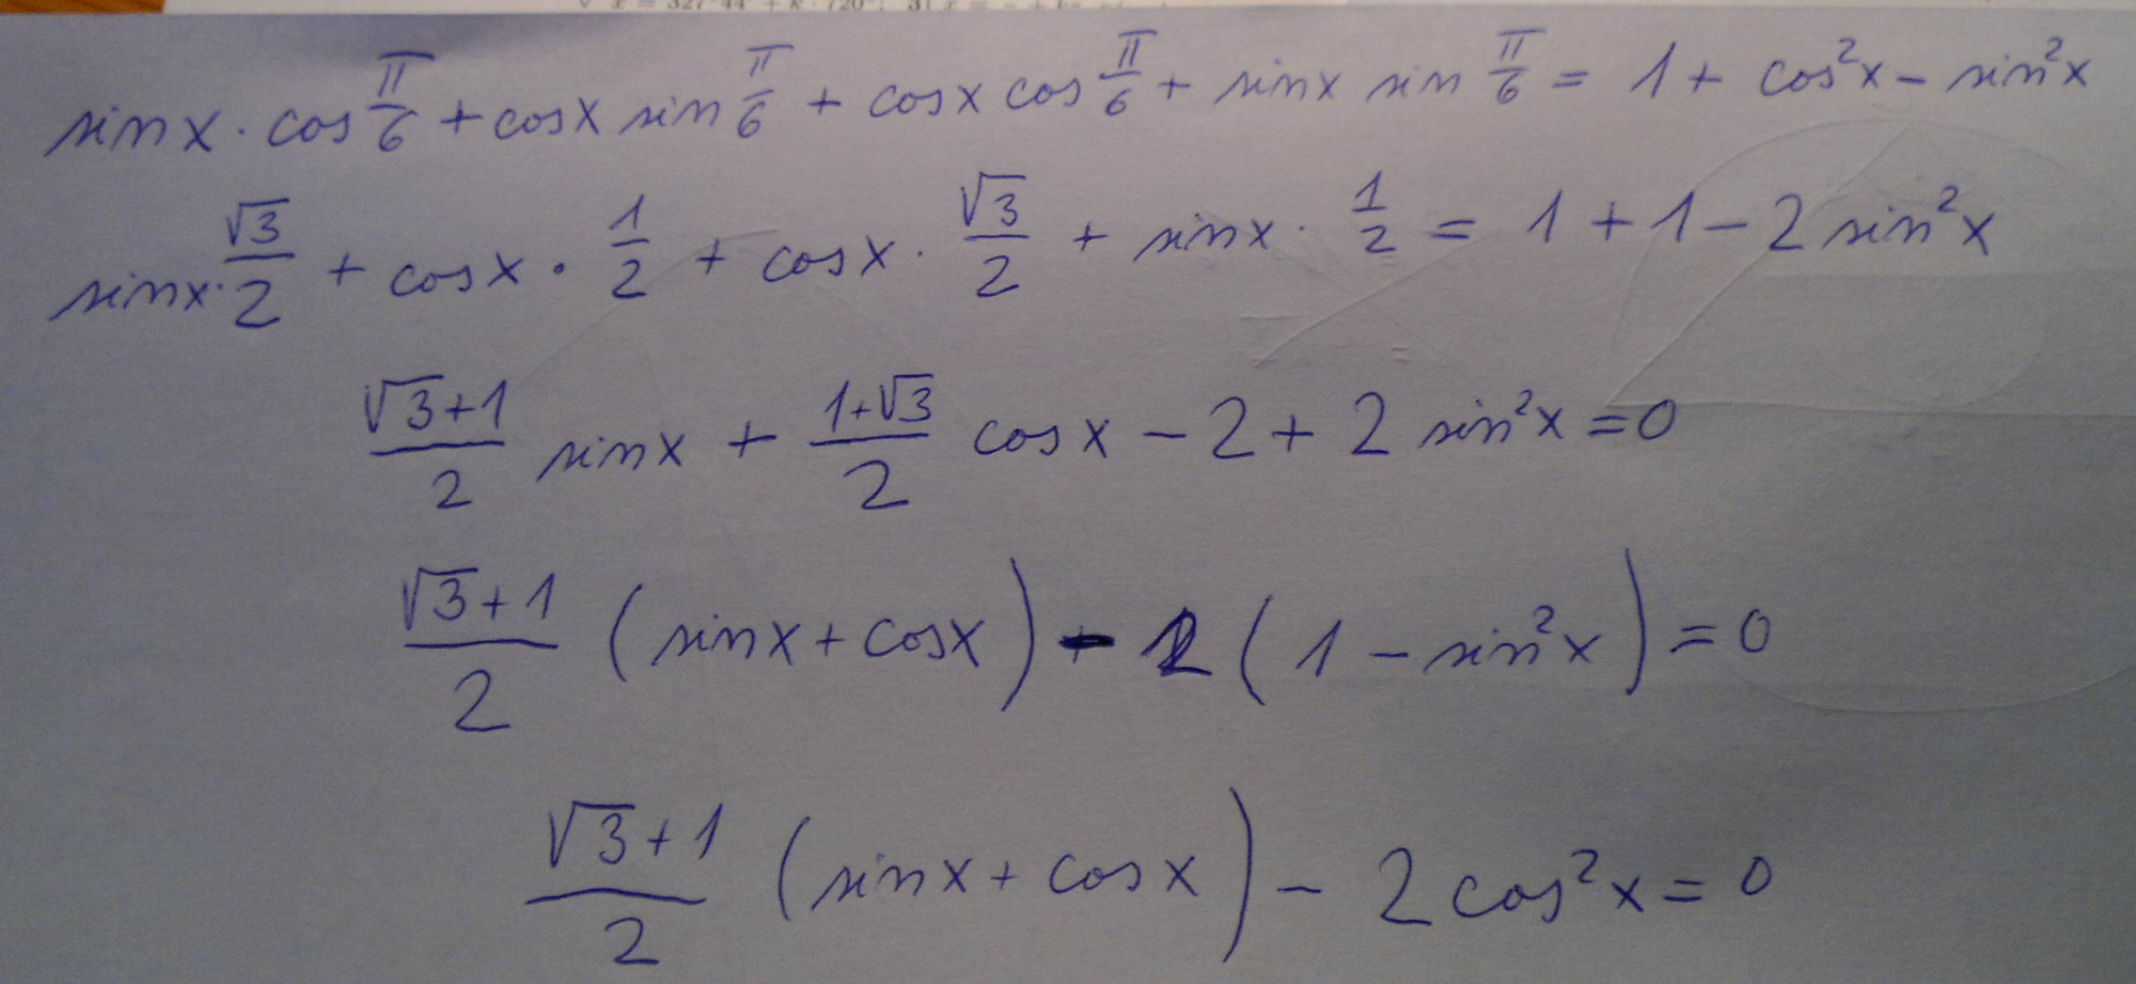 sinx · cos π/6 + cosx sin π/6 + cosx cos π/6 + sinx sin π/6 = 1 + cos²x − sin²x
sinx · √3/2 + cosx · 1/2 + cosx · √3/2 + sinx · 1/2 = 1 + 1 − 2 sin²x
(√3+1)/2 sinx + (1+√3)/2 cosx − 2 + 2 sin²x = 0
(√3+1)/2 (sinx + cosx) − 2 (1 − sin²x) = 0
(√3+1)/2 (sinx + cosx) − 2 cos²x = 0